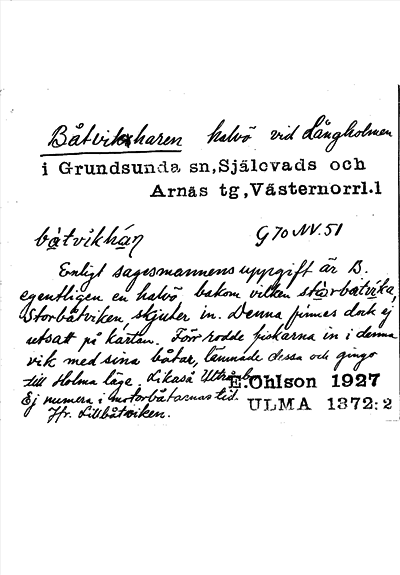 Båtvikharen halvö vid Långholmen
i Grundsunda sn,Själevads och
Arnäs tg,Västernorrl.l
båtvikhán G70 NV.51
Enligt sagesmannens uppgift är B.
egentligen en halvö, bakom vilken storbåtvika,
Storbåtviken skjuter in. Denna finnes dock ej
utsatt på kartan. Förr rodde fiskarna in i denna
vik med sina båtar, lämnade dessa och gingo
till Holma läge. Likaså
E.Ohlson 1927
Ej numera i motorbåtarnas tid.
Jfr. Lillbåtviken.
ULMA 1372:2